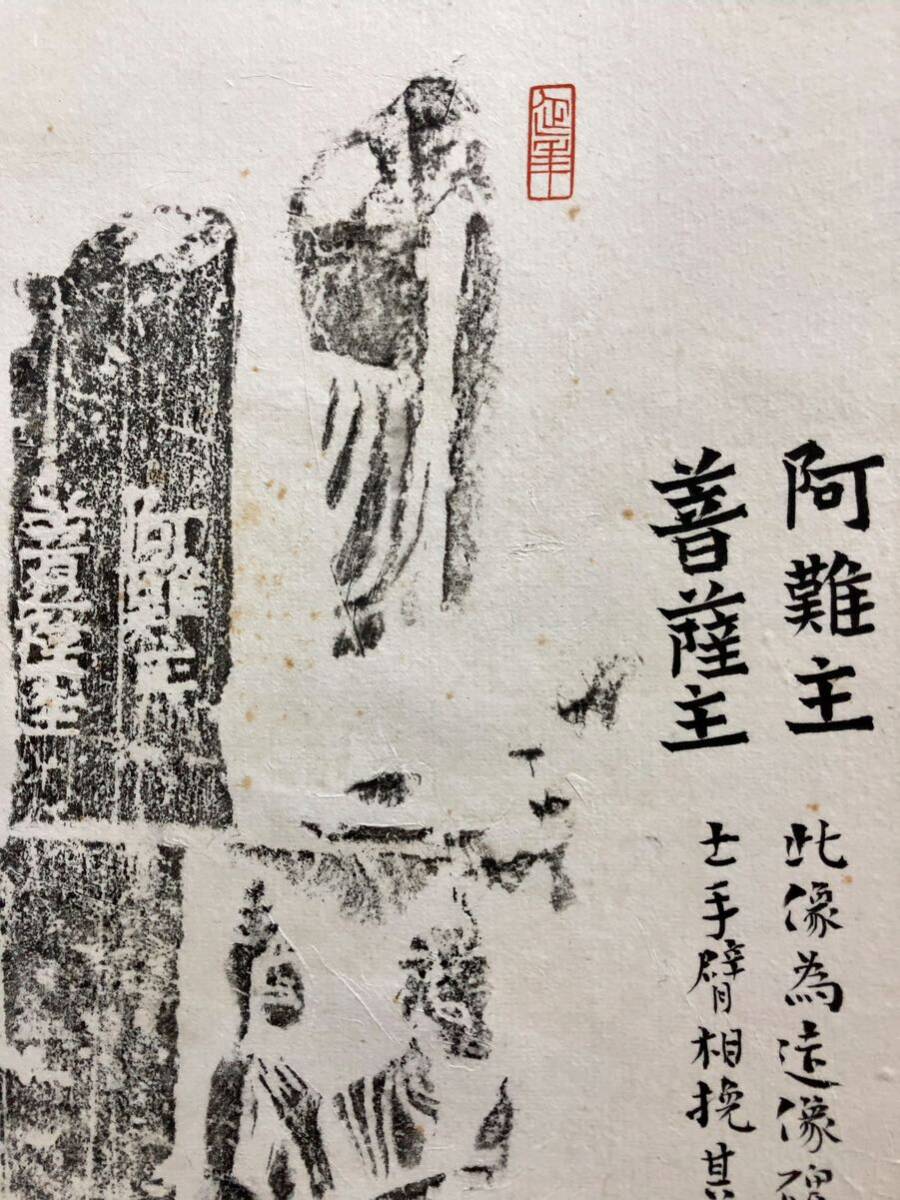 阿難主
菩薩主
此像為造像碑
士手臂相挽其
延年
阿難主
菩薩主